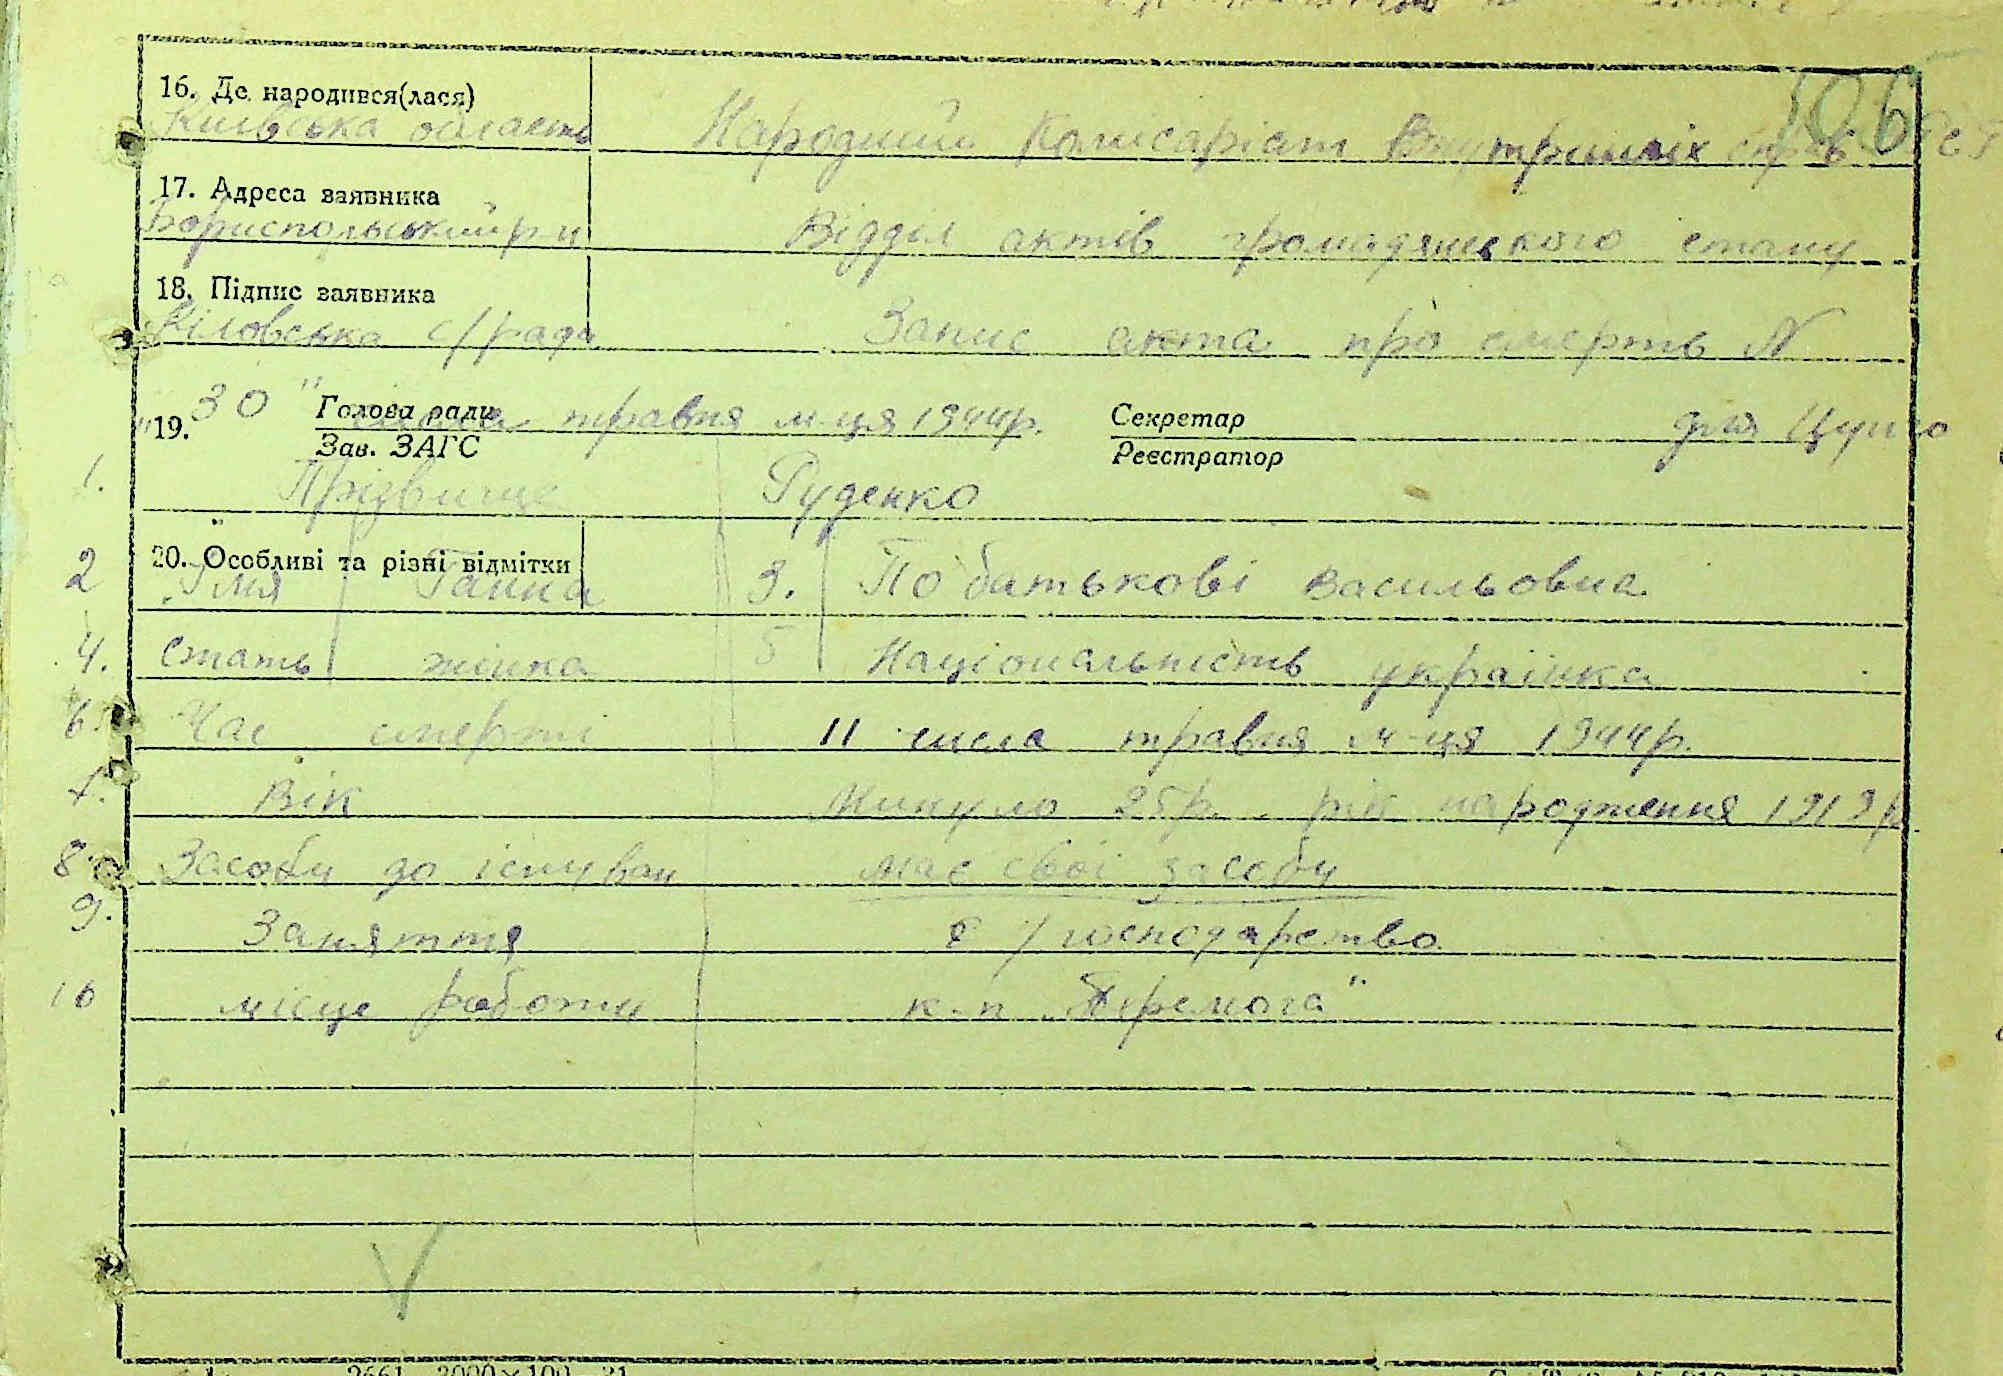 506
16. Де народився(лася)
Київська область Народний Комісаріат Внутрішніх справ
17. Адреса заявника
Бориспольський р-н Відділ актів громадянського стану
18. Підпис заявника
Кіловська с/рада Запис акта про смерть N
"19. 30" Голова ради числа травня м-ця 1944р. Секретар для Цунго
Зав. ЗАГС Реєстратор
1. Прізвище Руденко
20. Особливі та різні відмітки
2 Імя Ганна 3. По батькові Васильовна
4. Стать жінка 5 Національність українка
6. Час смерті 11 числа травня м-ця 1944р.
7. Вік Минуло 25р. рік народження 1919р.
8. Засоби до існуван має свої засоби
9. Заняття с/господарство
10 місце работи к-п "Перемога"